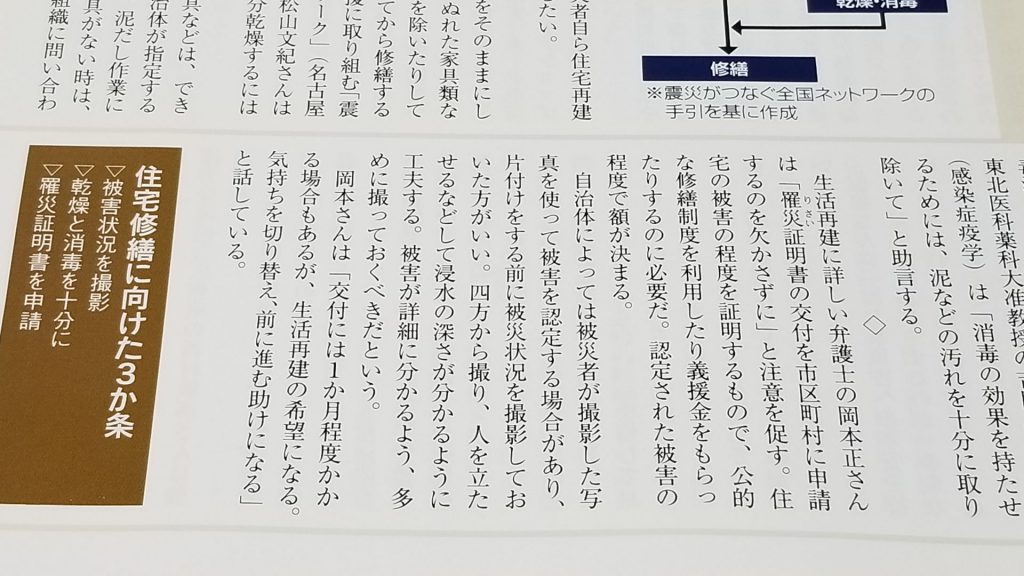 乾燥・消毒
修繕
※震災がつなぐ全国ネットワークの
手引を基に作成
者自ら住宅再建
たい。
をそのままにし
ぬれた家具類な
を除いたりして
てから修繕する
後に取り組む「震
ーク」（名古屋
松山文紀さんは
分乾燥するには
具などは、でき
治体が指定する
泥だし作業に
具がない時は、
組織に問い合わ
東北医科薬科大准教授の
（感染症疫学）は「消毒の効果を持たせ
るためには、泥などの汚れを十分に取り
除いて」と助言する。
◇
生活再建に詳しい弁護士の岡本正さん
は「罹災証明書の交付を市区町村に申請
りさい
するのを欠かさずに」と注意を促す。住
宅の被害の程度を証明するもので、公的
な修繕制度を利用したり義援金をもらっ
たりするのに必要だ。認定された被害の
程度で額が決まる。
自治体によっては被災者が撮影した写
真を使って被害を認定する場合があり、
片付けをする前に被災状況を撮影してお
いた方がいい。四方から撮り、人を立た
せるなどして浸水の深さが分かるように
工夫する。被害が詳細に分かるよう、多
めに撮っておくべきだという。
岡本さんは「交付には１か月程度かか
る場合もあるが、生活再建の希望になる。
気持ちを切り替え、前に進む助けになる」
と話している。
住宅修繕に向けた３か条
▽被害状況を撮影
▽乾燥と消毒を十分に
▽罹災証明書を申請